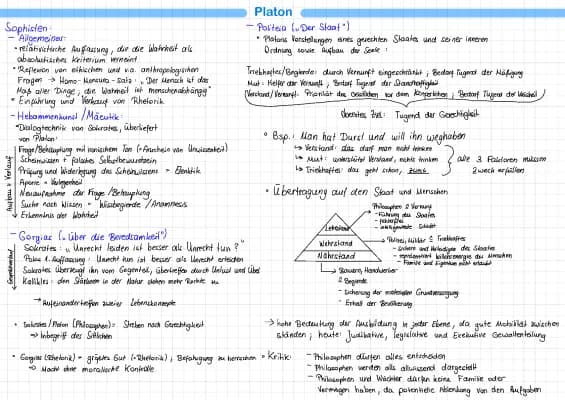 Platon
Sophisten:
- Allgemeines:
• relativistische Auffassung, die die Wahrheit als
absolutistisches Kriterium verneint
• Reflexion von ethischen und v.a. anthropologischen
Fragen → Homo-Mensura-Satz: "Der Mensch ist das
Maß aller Dinge, die Wahrheit ist menschenabhängig"
• Einführung und Verkauf von Rhetorik
- Hebammenkunst/Mäeutik:
• Dialogtechnik von Sokrates, überliefert
von Platon:
Aufbau + Verlauf
Frage/Behauptung mit ironischem Ton (= Anschein von Unwissenheit)
Scheinwissen + falsches Selbstbewusstsein
Prüfung und Widerlegung des Scheinwissens = Elenktik
Aporie = Verlegenheit
Neuaufnahme der Frage/Behauptung
Suche nach Wissen = Wissbegierde/Anamnesis
Erkenntnis der Wahrheit
- Gorgias ("Über die Beredsamkeit")
Sokrates: "Unrecht leiden ist besser als Unrecht tun?"
Polos & Auffassung: Unrecht tun ist besser als Unrecht erleiden
Sokrates überzeugt ihn vom Gegenteil, überliefern durch Unlust und Übel
Kallikles: den Stärkeren in der Natur stehen mehr Rechte zu
→ Aufeinandertreffen zweier Lebenskonzepte
• Sokrates/Platon (Philosophen) = Streben nach Gerechtigkeit
⇒ Inbegriff des Sittlichen
• Gorgias (Rhetorik) = größtes Gut (= Rhetorik), Befähigung zu herrschen
⇒ Macht ohne moralische Kontrolle
- Politeia ("Der Staat")
• Platons Vorstellungen eines gerechten Staates und seiner inneren
Ordnung sowie Aufbau der Seele:
Triebhaftes/Begierde: durch Vernunft eingeschränkt, Bedarf Tugend der Mäßigung
Mut: Helfer der Vernunft, Bedarf Tugend der Standhaftigkeit
Verstand/Vernunft: Priorität des Geistlichen vor dem Körperlichen, Bedarf Tugend der Weisheit
Oberstes Ziel: Tugend der Gerechtigkeit
• Bsp.: Man hat Durst und will ihn weghaben
↳ Verstand: das darf man nicht trinken
↳ Mut: unterstützt Verstand, nichts trinken
↳ Triebhaftes: das geht schon,
alle 3 Faktoren müssen
Zweck erfüllen
• Übertragung auf den Staat und Menschen
Lehrstand
Wehrstand
Nährstand
Philosophen ≙ Vernunft
- Führung des Staates
- Wächter, Militär ≙ Triebhaftes
- Sichern und Verteidigen des Staates
- Familie und Eigentum nicht erlaubt
Bauern, Handwerker
≙ Begierde
- Sicherung der materiellen Grundversorgung
- Erhalt der Bevölkerung
→ hohe Bedeutung der Ausbildung in jeder Ebene, da gute Mobilität zwischen
Ständen; heute: Judikative, Legislative und Exekutive Gewaltenteilung
• Kritik:
- Philosophen dürfen alles entscheiden
- Philosophen werden als allwissend dargestellt
- Philosophen und Wächter dürfen keine Familie oder
Vermögen haben, da potentielle Ablenkung von den Aufgaben